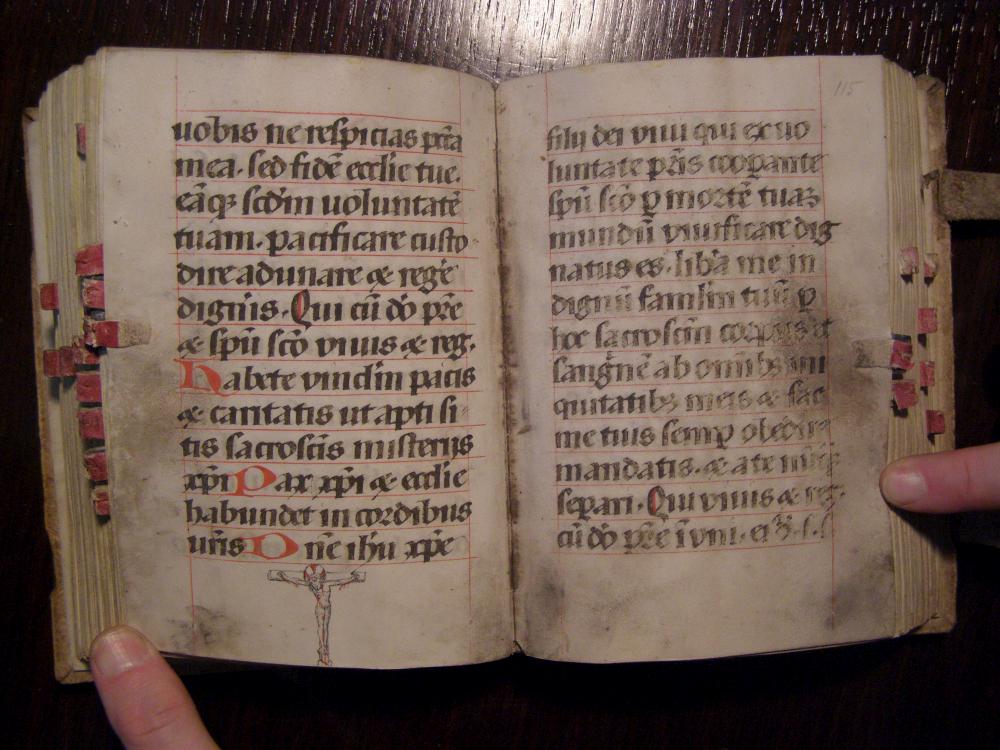 uobis ne respicias pctā
mea· sed fidē ecclie tue.
eāq̄ scdm uoluntatē
tuam· pacificare custo
dire adunare & regē
digneris· Qui cū dō pr̄e
& spū sc̄o viuis & reg·
Habete vinclm pacis
& caritatis ut apti si
tis sacrosc̄is misterijs
xp̄i Pax xp̄i & ecclie
habundet in cordibus
ur̄is Dn̄e ihū xp̄e
115
filij dei viui qui ex uo
luntate pr̄is coop̄ante
spū sc̄o ꝑ mortē tuaꝫ
mundū viuificare dig
natus es· lib̄a me in
dignū famlm tuū ꝑ
hoc sacrosc̄m corpus et
sangn̄ē ab omībꝫ ini
quitatibꝫ meis & fac
me tuis semꝑ obedire
mandatis· & a te
separi· Qui viuis & reg·
cū dō pr̄e ī vni· ei